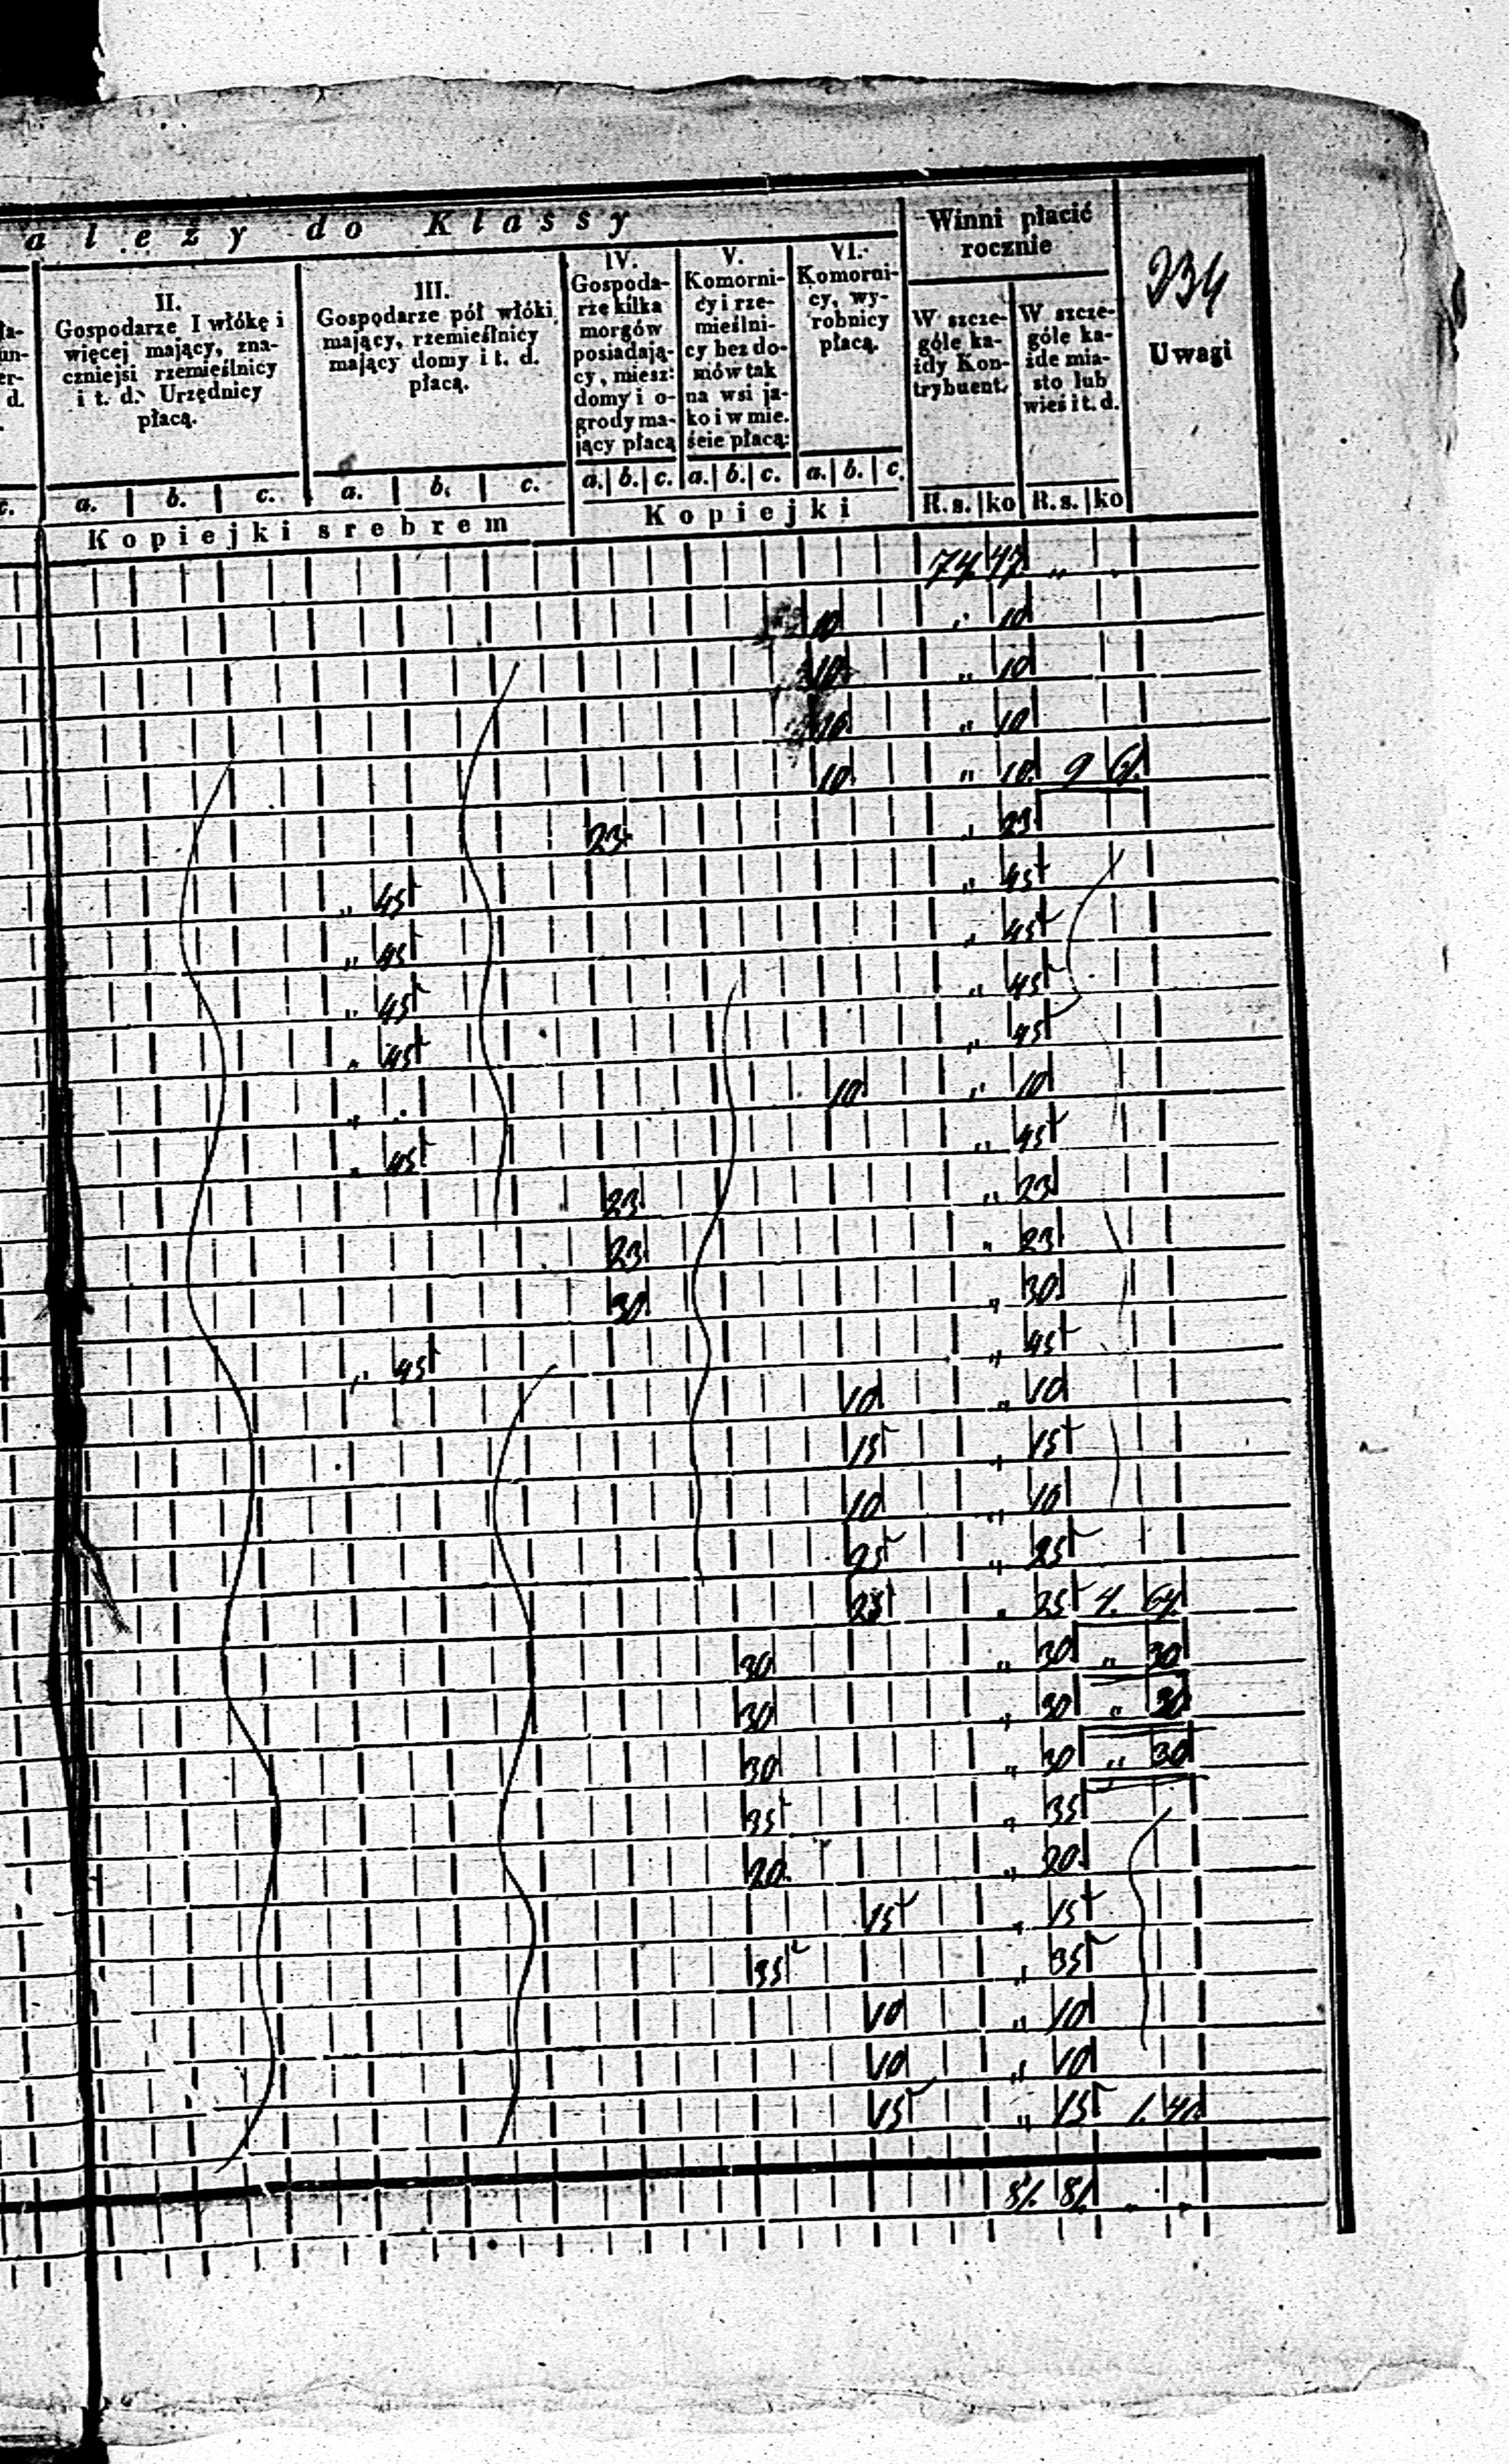 ależy do Klassy
Winni płacić
rocznie
234
II.
Gospodarze I włókę i
więcej mający, zna-
czniejsi rzemieślnicy
i t. d. Urzędnicy
płacą.
III.
Gospodarze pół włóki
mający, rzemieślnicy
mający domy i t. d.
płacą.
IV.
Gospoda-
rze kilka
morgów
posiadają-
cy, miesz:
domy i o-
grody ma-
jący płacą
V.
Komorni-
cy i rze-
mieślni-
cy bez do-
mów tak
na wsi ja-
ko i w mie.
ście płacą:
VI.
Komorni-
cy, wy-
robnicy
płacą.
W szcze-
góle ka-
żdy Kon-
trybuent.
W szcze-
góle ka-
żde mia-
sto lub
wieś i t. d.
Uwagi
c. a. b. c. a. b. c. a. b. c. a. b. c. a. b. c. R. s. ko R. s. ko
Kopiejki srebrem Kopiejki
74 47 „ „
10 „ 10
10 „ 10
10 „ 10
10 „ 10 9
23 „ 23
„ 45 „ 45
„ 45 „ 45
„ 45 „ 45
„ 45 „ 45
„ 10 „ 10
„ 45 „ 45
23 „ 23
23 „ 23
30 „ 30
„ 45 „ 45
10 „ 10
15 „ 15
10 „ 10
25 „ 25
25 „ 25 4. 64.
30 „ 30 „ 30
30 „ 30 „ 30
30 „ 30 „ 30
35 „ 35
20 „ 20
15 „ 15
35 „ 35
10 „ 10
10 „ 10
15 „ 15 1. 40
81. 81. „ „